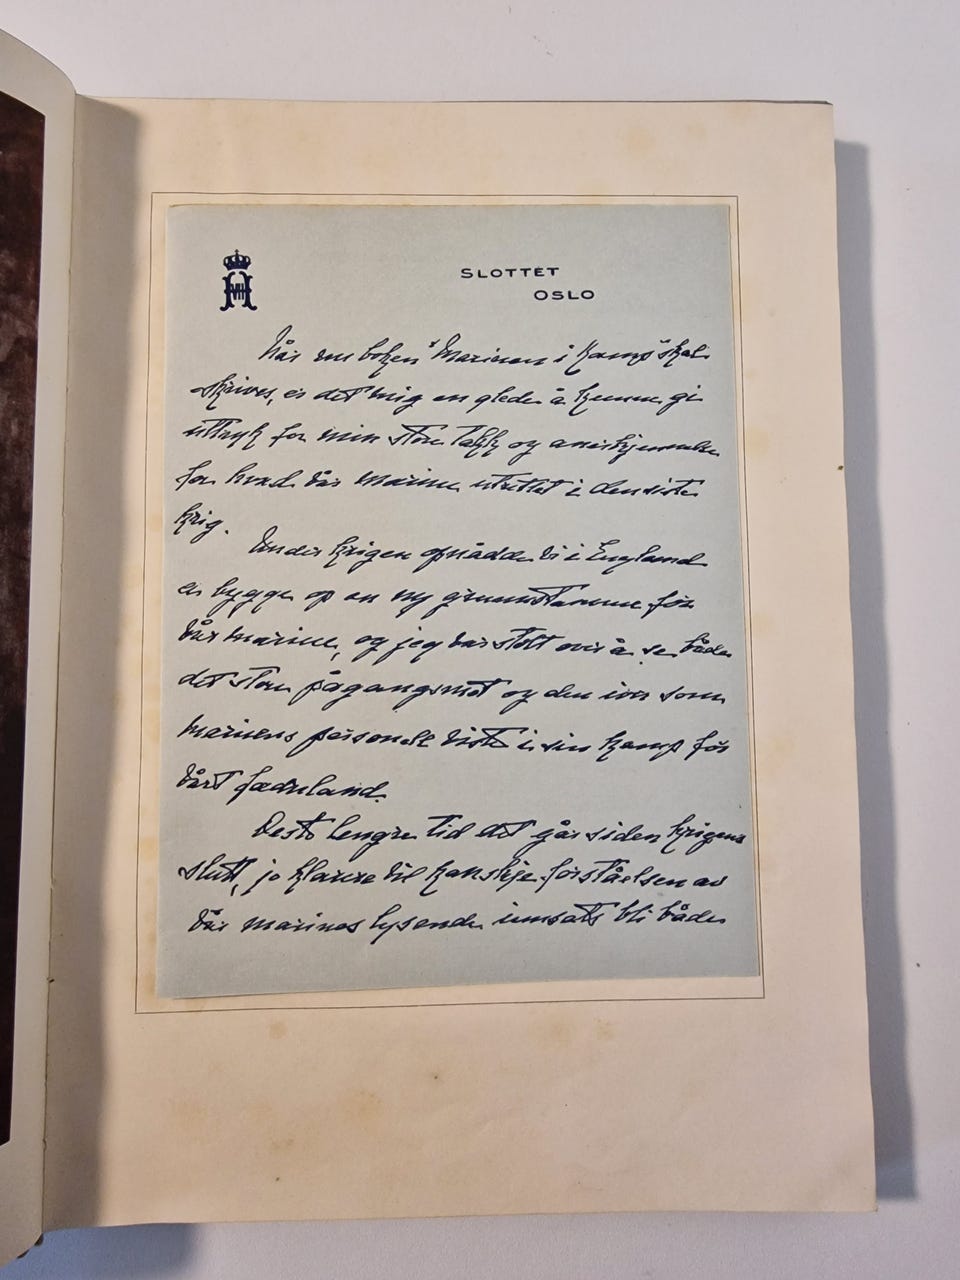 SLOTTET
OSLO
Når nu boken "Marinen i Kamp" skal
skrives, er det mig en glede å kunne gi
uttryk for min store takk og anerkjennelse
for hvad vår marine utrettet i den siste
krig.
Under krigen opnådde vi i England
å bygge op en ny grunnstamme för
vår marine, og jeg var stolt over å se både
det store pågangsmot og den iver som
marinens personell viste i sin kamp för
vårt fædreland.
Desto lengre tid det går siden krigens
slutt, jo klarere vil kanskje forståelsen av
vår marines lysende innsats bli både